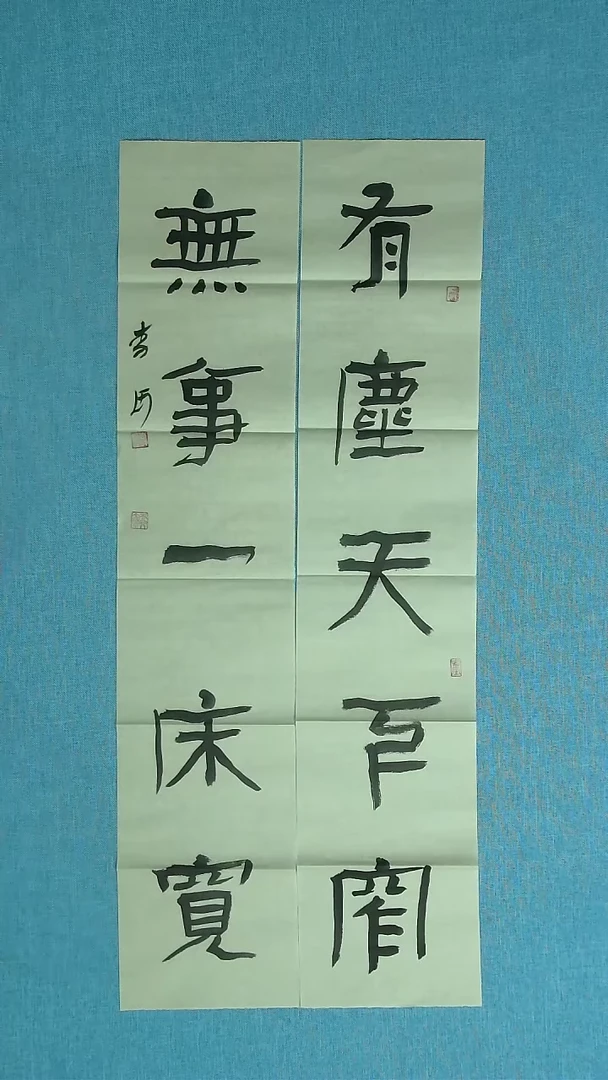 有塵天下窄
無事一床寬